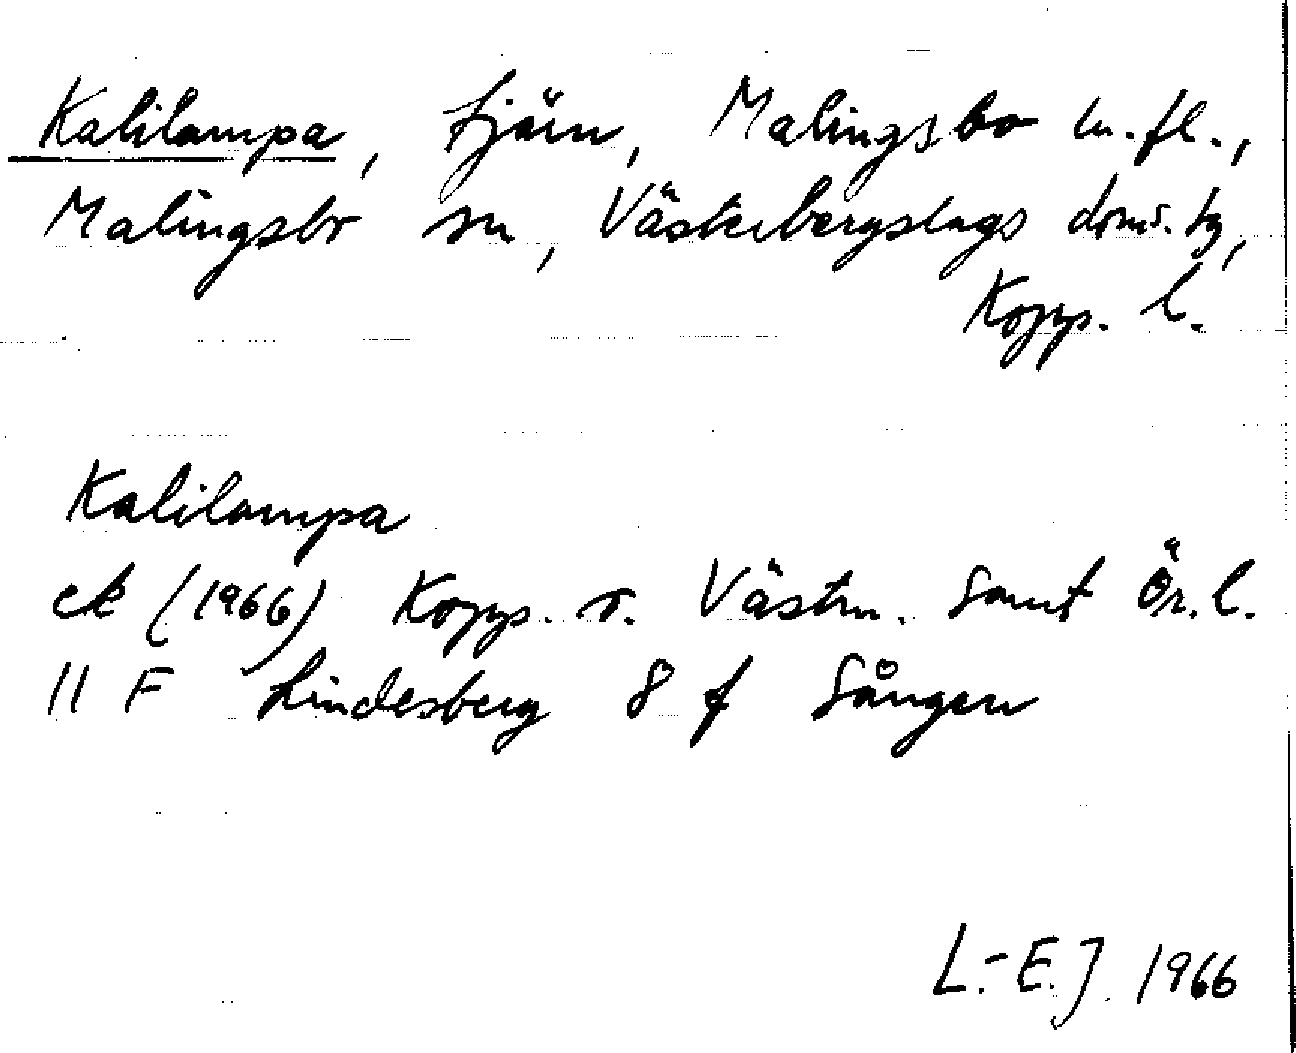 Kalilampa, tjärn, Malingsbo m.fl.,
Malingsbo sn, Västerbergslags doms. tg,
Kopp. l.
Kalilampa
ek (1966) Kopp. o. Västm. samt Ör. l.
11 F Lindesberg 8 f Sången
L.-E.J. 1966